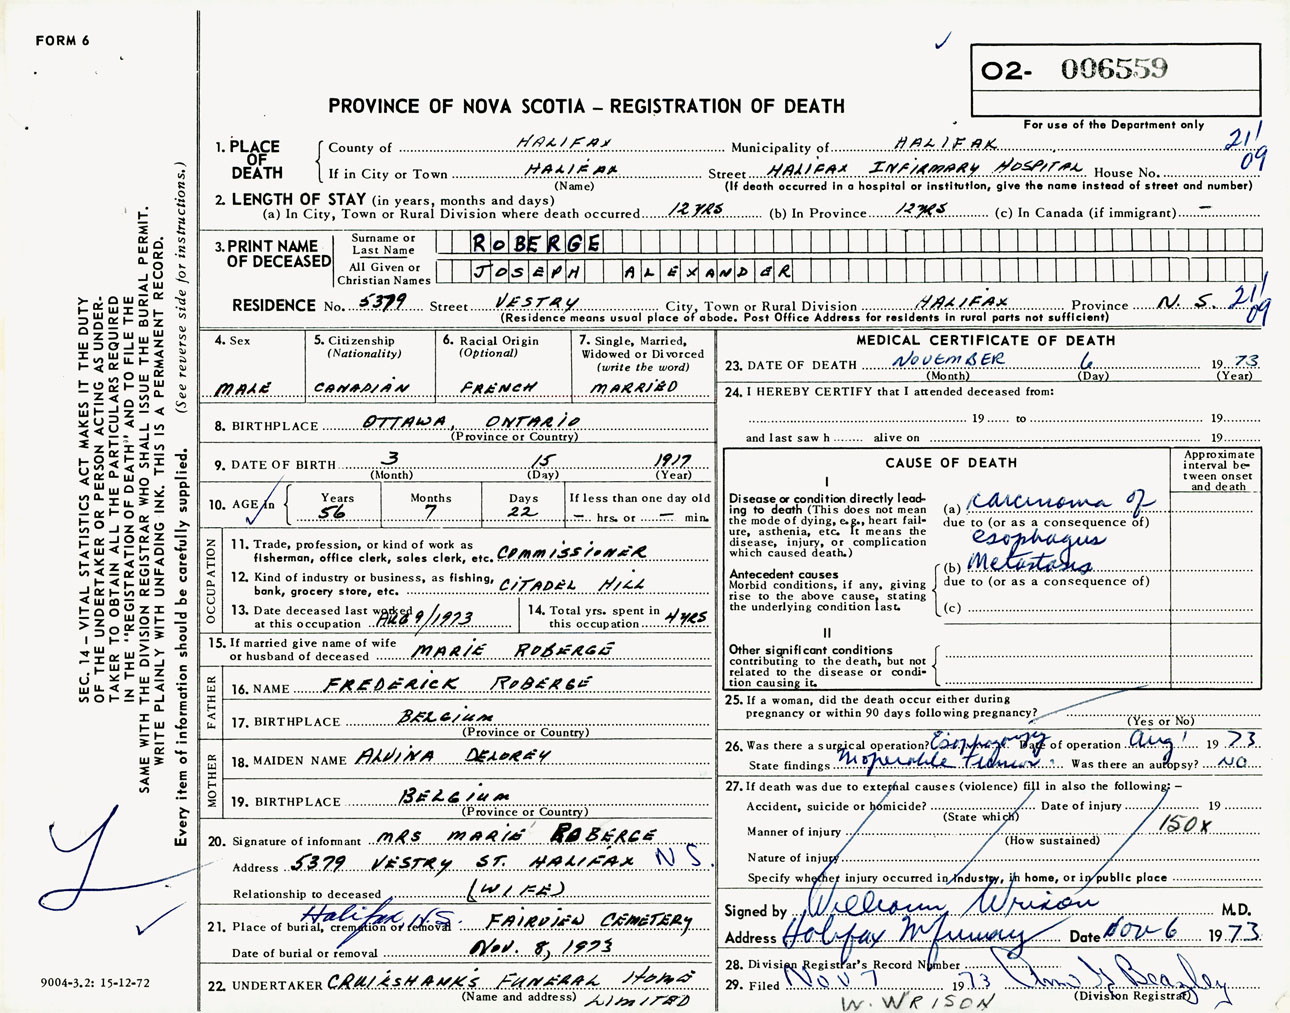 FORM 6
O2- 006559
PROVINCE OF NOVA SCOTIA – REGISTRATION OF DEATH
For use of the Department only
SEC. 14 – VITAL STATISTICS ACT MAKES IT THE DUTY
OF THE UNDERTAKER OR PERSON ACTING AS UNDER-
TAKER TO OBTAIN ALL THE PARTICULARS REQUIRED
IN THE "REGISTRATION OF DEATH" AND TO FILE THE
SAME WITH THE DIVISION REGISTRAR WHO SHALL ISSUE THE BURIAL PERMIT.
WRITE PLAINLY WITH UNFADING INK. THIS IS A PERMANENT RECORD.
Every item of information should be carefully supplied. (See reverse side for instructions.)
1. PLACE OF DEATH
County of HALIFAX Municipality of HALIFAX 21' 09
If in City or Town HALIFAX Street HALIFAX INFIRMARY HOSPITAL House No.
(Name) (If death occurred in a hospital or institution, give the name instead of street and number)
2. LENGTH OF STAY (in years, months and days)
(a) In City, Town or Rural Division where death occurred 12 YRS (b) In Province 12 YRS (c) In Canada (if immigrant) –
3. PRINT NAME OF DECEASED
Surname or Last Name ROBERGE
All Given or Christian Names JOSEPH ALEXANDER
RESIDENCE No. 5379 Street VESTRY City, Town or Rural Division HALIFAX Province N. S. 21' 09
(Residence means usual place of abode. Post Office Address for residents in rural parts not sufficient)
4. Sex MALE
5. Citizenship (Nationality) CANADIAN
6. Racial Origin (Optional) FRENCH
7. Single, Married, Widowed or Divorced (write the word) MARRIED
8. BIRTHPLACE OTTAWA, ONTARIO
(Province or Country)
9. DATE OF BIRTH 3 15 1917
(Month) (Day) (Year)
10. AGE in Years 56 Months 7 Days 22 If less than one day old – hrs. or – min.
OCCUPATION
11. Trade, profession, or kind of work as
fisherman, office clerk, sales clerk, etc. COMMISSIONER
12. Kind of industry or business, as fishing,
bank, grocery store, etc. CITADEL HILL
13. Date deceased last worked
at this occupation AUG 9/1973
14. Total yrs. spent in
this occupation 4 YRS
15. If married give name of wife
or husband of deceased MARIE ROBERGE
FATHER
16. NAME FREDERICK ROBERGE
17. BIRTHPLACE BELGIUM
(Province or Country)
MOTHER
18. MAIDEN NAME ALVINA DELOREY
19. BIRTHPLACE BELGIUM
(Province or Country)
20. Signature of informant MRS MARIE ROBERGE
Address 5379 VESTRY ST. HALIFAX N S.
Relationship to deceased (WIFE)
21. Place of burial, cremation or removal Halifax N.S. FAIRVIEW CEMETERY
Date of burial or removal NOV. 8, 1973
22. UNDERTAKER CRUIKSHANKS FUNERAL HOME
(Name and address) LIMITED
MEDICAL CERTIFICATE OF DEATH
23. DATE OF DEATH NOVEMBER 6 1973
(Month) (Day) (Year)
24. I HEREBY CERTIFY that I attended deceased from:
19 to 19
and last saw h alive on 19
CAUSE OF DEATH
Approximate interval between onset and death
I
Disease or condition directly lead-
ing to death (This does not mean
the mode of dying, e.g., heart fail-
ure, asthenia, etc. It means the
disease, injury, or complication
which caused death.)
(a) Carcinoma of
due to (or as a consequence of)
esophagus
Antecedent causes
Morbid conditions, if any, giving
rise to the above cause, stating
the underlying condition last.
(b) Metastasis
due to (or as a consequence of)
(c)
II
Other significant conditions
contributing to the death, but not
related to the disease or condi-
tion causing it.
25. If a woman, did the death occur either during
pregnancy or within 90 days following pregnancy?
(Yes or No)
26. Was there a surgical operation? Date of operation Aug 1 1973
State findings Inoperable Tumor. Was there an autopsy? NO
27. If death was due to external causes (violence) fill in also the following: –
Accident, suicide or homicide? Date of injury 19
(State which)
Manner of injury 150x
(How sustained)
Nature of injury
Specify whether injury occurred in industry, in home, or in public place
Signed by William Wrixon M.D.
Address Halifax Infirmary Date Nov 6 1973
28. Division Registrar's Record Number
29. Filed Nov 7 1973
(Division Registrar)
W. WRIXON
9004-3.2: 15-12-72